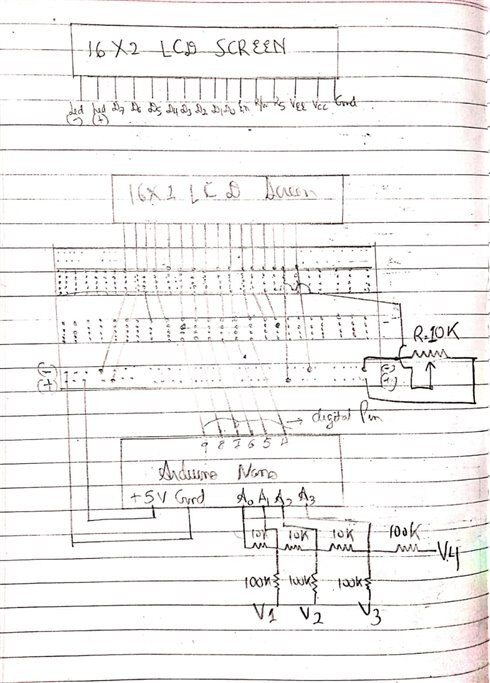 16 X 2 LCD SCREEN
Led (-) Led (+) D7 D6 D5 D4 D3 D2 D1 D0 En R/w RS VEE Vcc Gnd
16 X 2 LCD Screen
R.10K
(-) (-)
(+) (+)
digital Pin
9 8 7 6 5 4
Arduino Nano
+5V Gnd A0 A1 A2 A3
10K 10K 10K 100K
V4
100K 100K 100K
V1 V2 V3